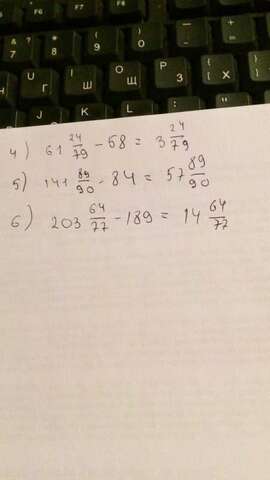 & 7 ? * 8 ( 9 ) 0 _ - + =
Г Ш Щ З Х
4) 61 24/79 - 58 = 3 24/79
5) 141 89/90 - 84 = 57 89/90
6) 203 64/77 - 189 = 14 64/77